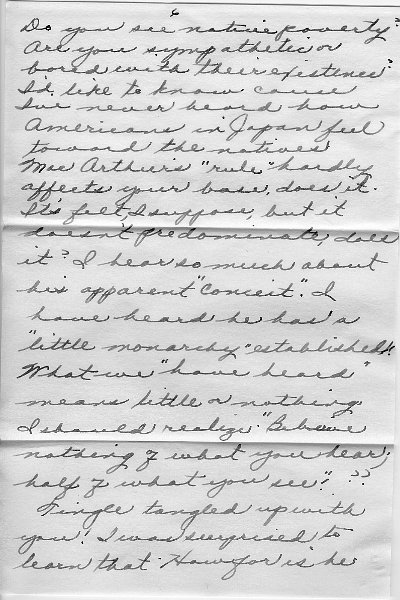 6
Do you see native poverty?
Are you sympathetic or
bored with their existence?
I'd like to know cause
I've never heard how
Americans in Japan feel
toward the natives.
Mac Arthur's "rule" hardly
affects your base, does it.
It's felt, I suppose, but it
doesn't predominate, does
it? I hear so much about
his apparent "conceit". I
have heard he has a
"little monarchy" established!!
What we "have heard"
means little or nothing
I should realize. "Believe
nothing of what you hear,
half of what you see". ??
Fingle tangled up with
you! I was surprised to
learn that. How far is he